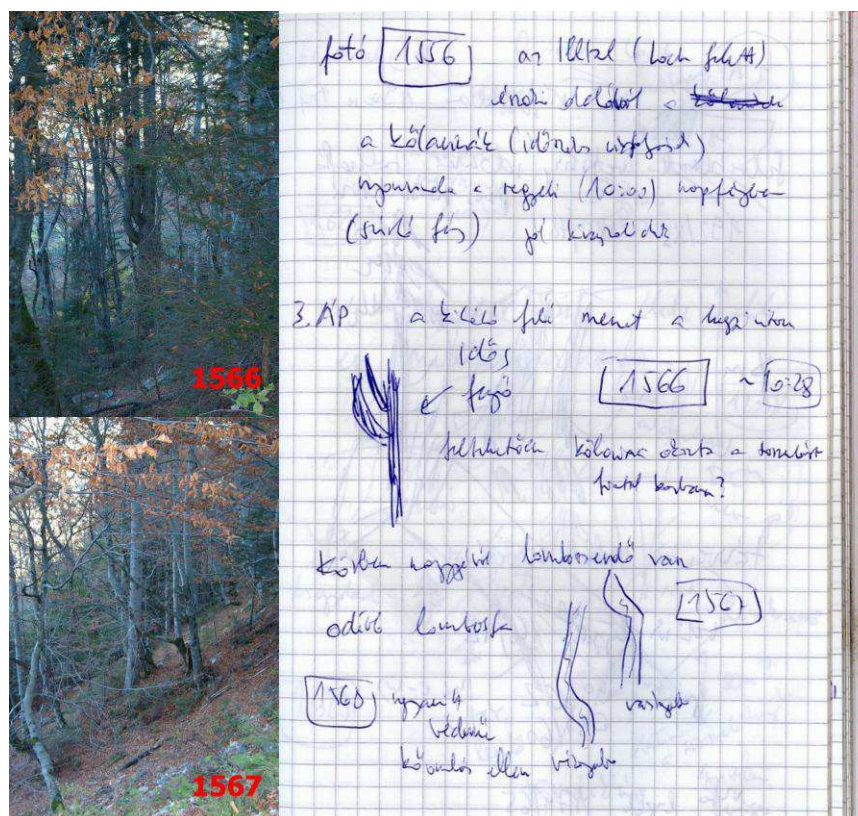 1566
1567
fotó 1556 az Illtal (Loch felett)
északi oldaláról a
a kőlavinák (időszakos vízfolyás)
nyomvonala a reggeli (10:00) napfényben
(súrló fény) jól kirajzolódik
3. ÁP a kilátó felé menet a hegyi úton
idős
fenyő
1566 ~ 10:28
feltehetően kőlavina okozta a torzulást
fiatal korban?
Körben nagyrészt lomboserdő van
odébb lombosfa 1567
1568
védmű
kőomlás ellen